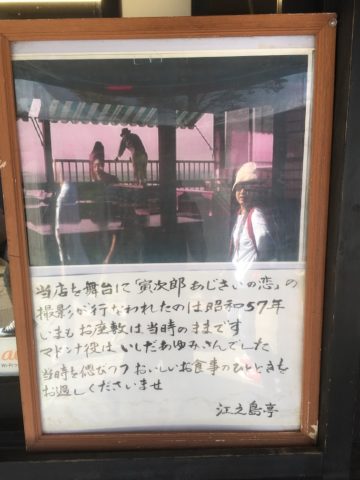 当店を舞台に「寅次郎あじさいの恋」の
撮影が行なわれたのは昭和57年
いまもお座敷は当時のままです
マドンナ役はいしだあゆみさんでした
当時を偲びつつおいしいお食事のひとときを
お過しくださいませ
江之島亭